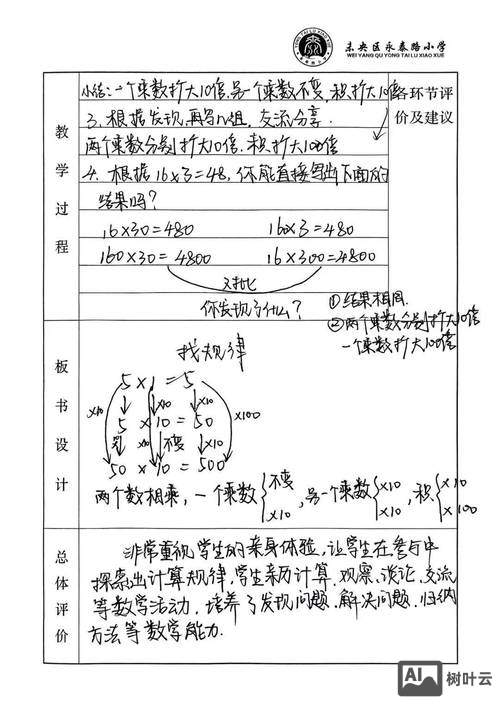 未央区永泰路小学
WEI YANG QU YONG TAI LU XIAO XUE
教学过程
各环节评价及建议
小结:一个乘数扩大10倍,另一个乘数不变,积扩大10倍
3、根据发现,再写几组,交流分享.
两个乘数分别扩大10倍.积扩大100倍
4、根据16×3=48,你能直接写出下面的
结果吗?
16×30=480 160×3=480
160×30=4800 16×300=4800
对比
你发现了什么?
①结果相同.
②两个乘数分别扩大10倍
一个乘数扩大100倍
板书设计
找规律
5×1=5
×10 ×10 ×10
5×10=50 ×100
×10 不变 ×10
50×10=500
两个数相乘,一个乘数{不变 ×10,另一个乘数{×10 ×10,积{×10 ×100
总体评价
非常重视学生的亲身体验,让学生在参与中
探索出计算规律,学生亲历计算,观察、谈论、交流
等数学活动,培养了发现问题、解决问题、归纳
方法等数学能力.
AI 树叶云